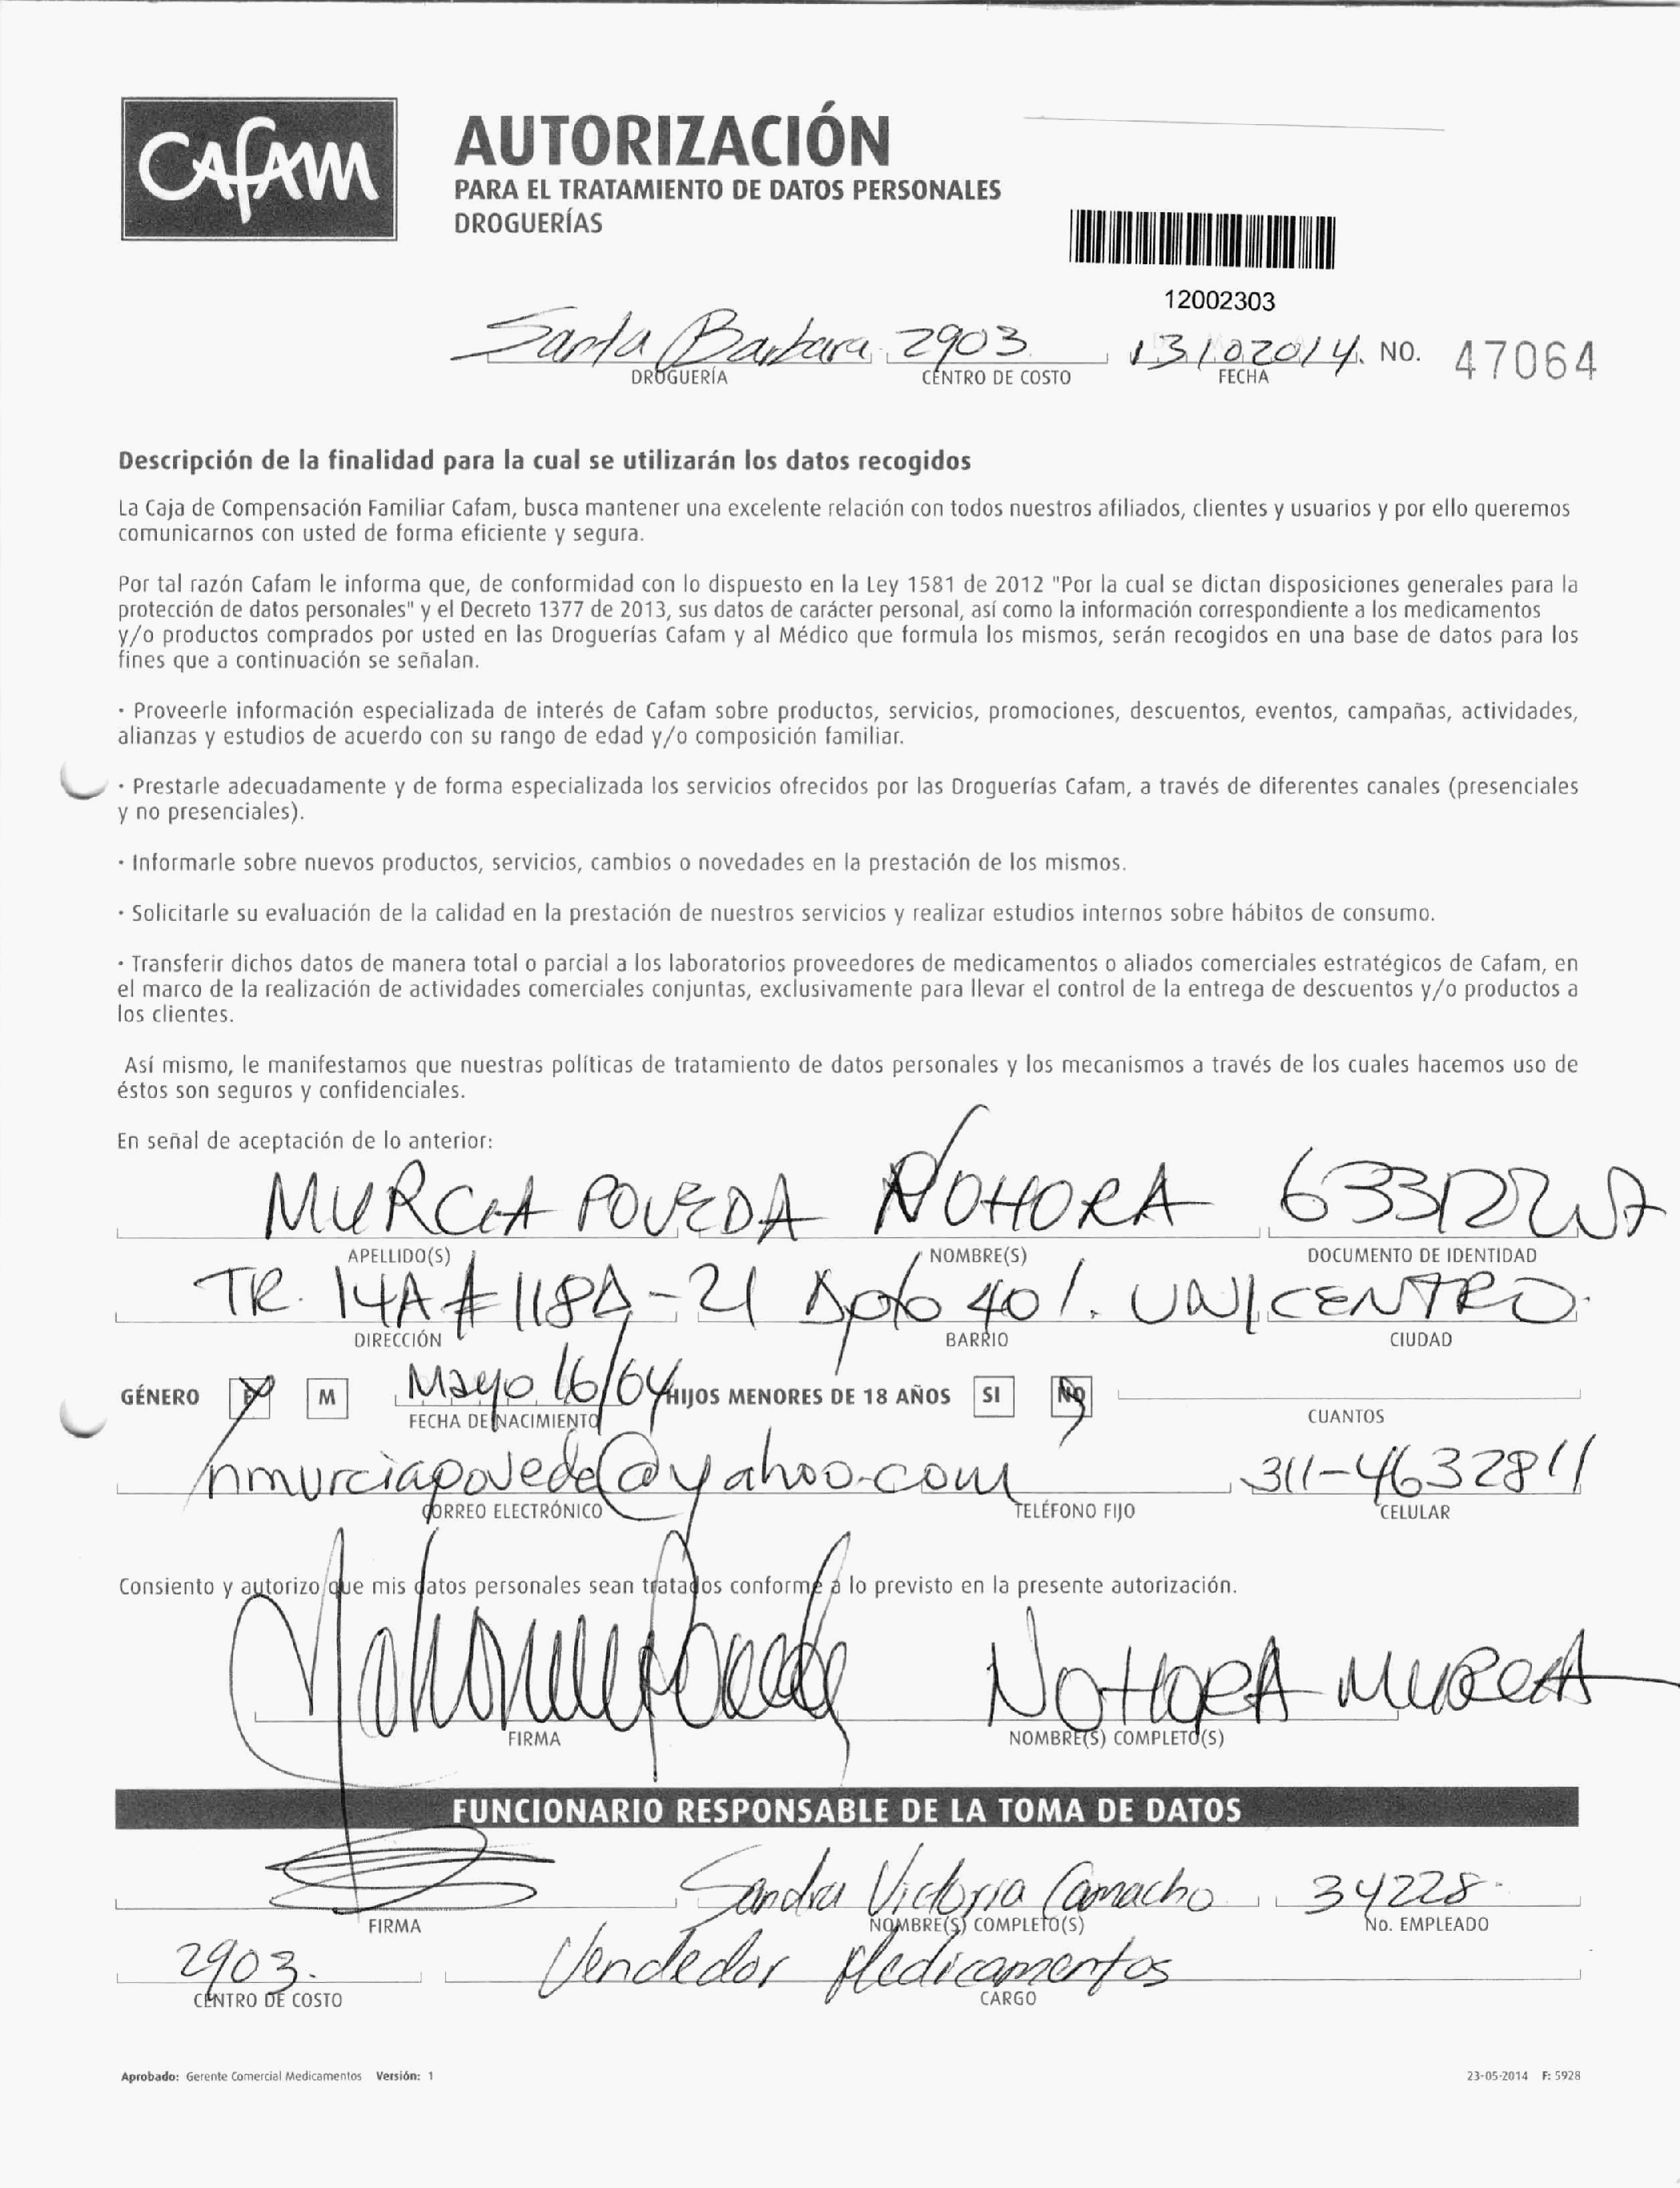 CAFAM
AUTORIZACIÓN
PARA EL TRATAMIENTO DE DATOS PERSONALES
DROGUERÍAS
12002303
Santa Barbara 2903 NO. 47064
DROGUERÍA CENTRO DE COSTO FECHA
Descripción de la finalidad para la cual se utilizarán los datos recogidos
La Caja de Compensación Familiar Cafam, busca mantener una excelente relación con todos nuestros afiliados, clientes y usuarios y por ello queremos
comunicarnos con usted de forma eficiente y segura.
Por tal razón Cafam le informa que, de conformidad con lo dispuesto en la Ley 1581 de 2012 "Por la cual se dictan disposiciones generales para la
protección de datos personales" y el Decreto 1377 de 2013, sus datos de carácter personal, así como la información correspondiente a los medicamentos
y/o productos comprados por usted en las Droguerías Cafam y al Médico que formula los mismos, serán recogidos en una base de datos para los
fines que a continuación se señalan.
· Proveerle información especializada de interés de Cafam sobre productos, servicios, promociones, descuentos, eventos, campañas, actividades,
alianzas y estudios de acuerdo con su rango de edad y/o composición familiar.
· Prestarle adecuadamente y de forma especializada los servicios ofrecidos por las Droguerías Cafam, a través de diferentes canales (presenciales
y no presenciales).
· Informarle sobre nuevos productos, servicios, cambios o novedades en la prestación de los mismos.
· Solicitarle su evaluación de la calidad en la prestación de nuestros servicios y realizar estudios internos sobre hábitos de consumo.
· Transferir dichos datos de manera total o parcial a los laboratorios proveedores de medicamentos o aliados comerciales estratégicos de Cafam, en
el marco de la realización de actividades comerciales conjuntas, exclusivamente para llevar el control de la entrega de descuentos y/o productos a
los clientes.
Así mismo, le manifestamos que nuestras políticas de tratamiento de datos personales y los mecanismos a través de los cuales hacemos uso de
éstos son seguros y confidenciales.
En señal de aceptación de lo anterior:
MURCIA POVEDA NOHORA
APELLIDO(S) NOMBRE(S) DOCUMENTO DE IDENTIDAD
TR. 14A # 118A-21 Apto 401. UNICENTRO.
DIRECCIÓN BARRIO CIUDAD
GÉNERO F M Mayo 16/64 HIJOS MENORES DE 18 AÑOS SI NO
FECHA DE NACIMIENTO CUANTOS
nmurciapoveda@yahoo.com 311-4632811
CORREO ELECTRÓNICO TELÉFONO FIJO CELULAR
Consiento y autorizo que mis datos personales sean tratados conforme a lo previsto en la presente autorización.
NOHORA MURCIA
FIRMA NOMBRE(S) COMPLETO(S)
FUNCIONARIO RESPONSABLE DE LA TOMA DE DATOS
Sandra Victoria Camacho 34228
FIRMA NOMBRE(S) COMPLETO(S) No. EMPLEADO
2903. Vendedor Medicamentos
CENTRO DE COSTO CARGO
Aprobado: Gerente Comercial Medicamentos Versión: 1 23-05-2014 F: 5928